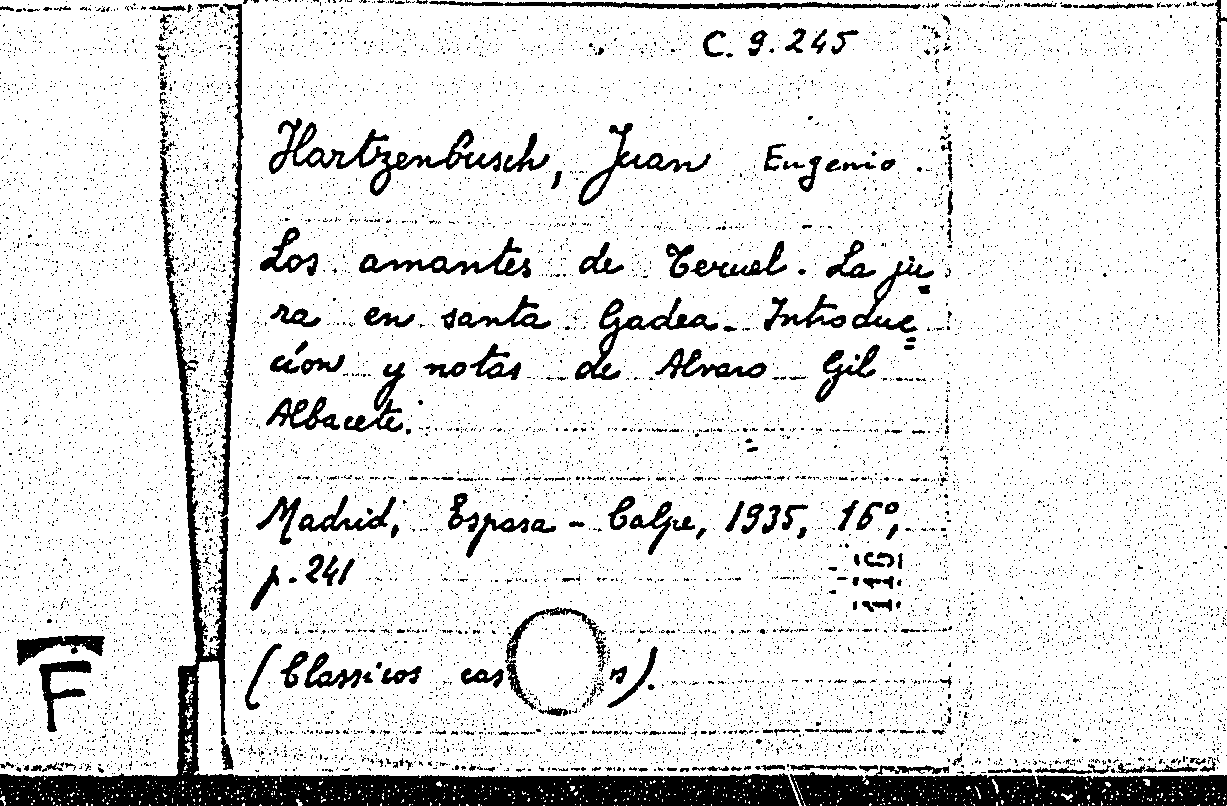 C. 9. 245
Hartzenbusch, Juan Eugenio.
Los amantes de Teruel. La ju=
ra en santa Gadea. Introduc=
ción y notas de Alvaro Gil
Albacete.
Madrid, Espasa - Calpe, 1935, 16º,
p. 241
(Classicos cas s).
F